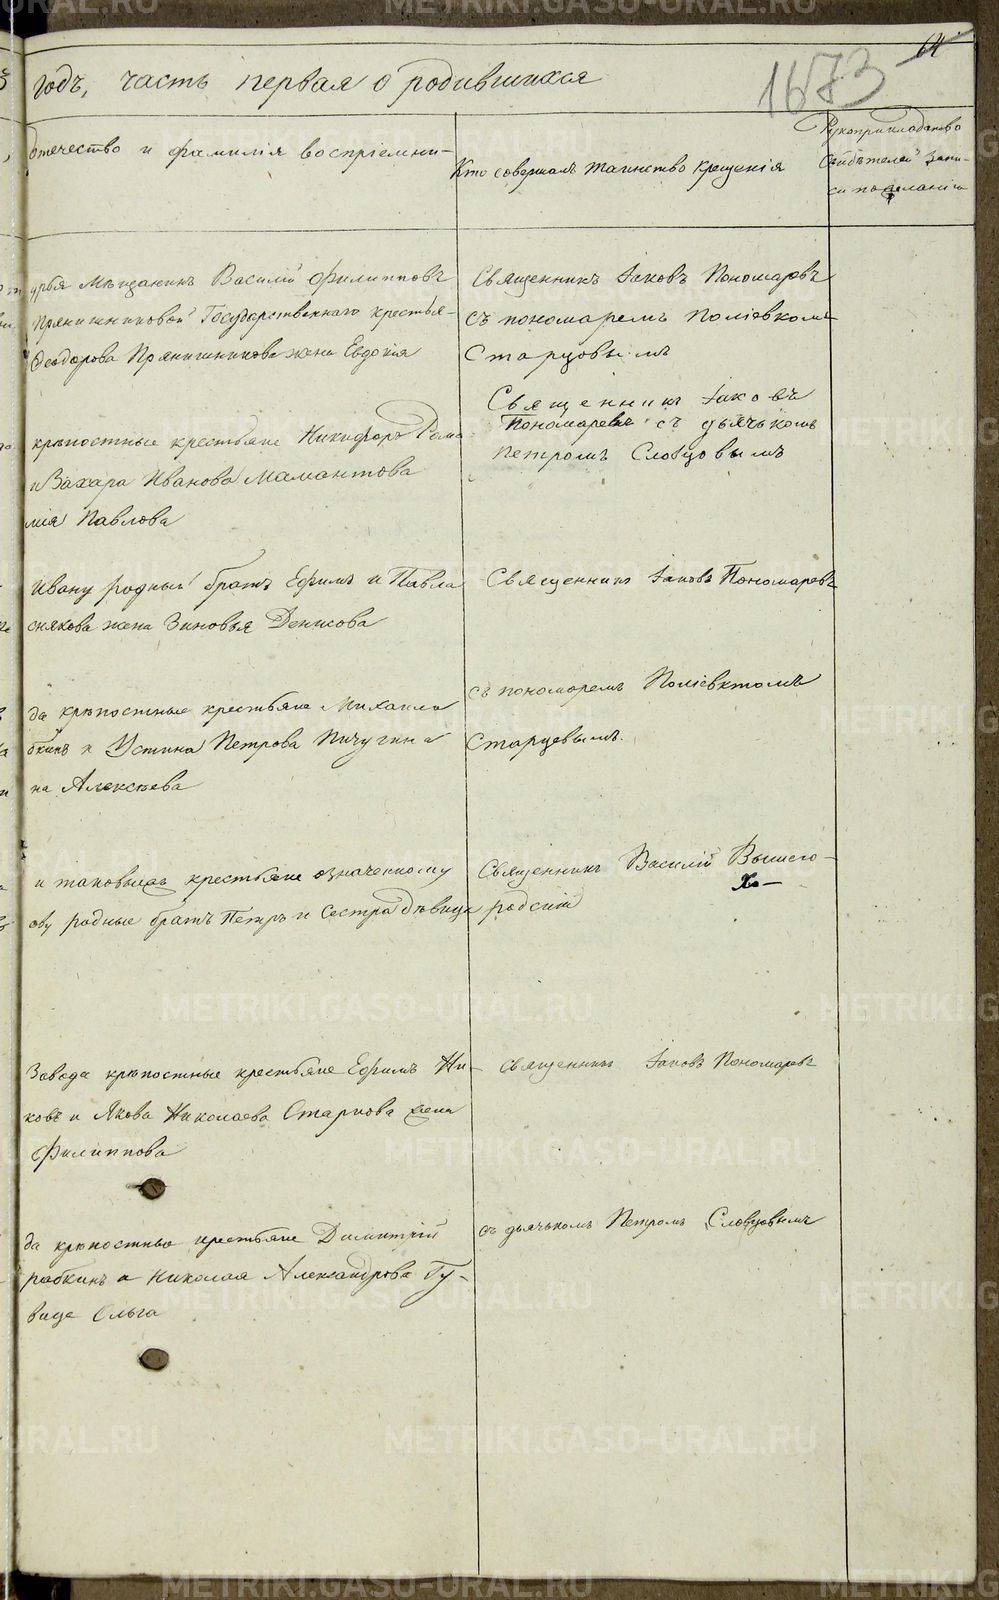 64
1673
годъ, часть первая о родившихся
отечество и фамилія воспріемни-
Кто совершалъ таинство крещенія
Рукоприкладство
свидѣтелей запи-
си по желанію
Мѣщанинъ Василій Филипповъ
Прянишниковой Государственнаго крестья-
Ѳеодорова Прянишникова жена Евдокія
Священникъ Іаковъ Пономаревъ
съ пономаремъ Поліевкомъ
Старцовымъ
крѣпостные крестьяне Никифоръ Рома
и Захара Иванова Мамонтова
мія Павлова
Священникъ Іаковъ
Пономаревъ съ дьячькомъ
Петромъ Словцовымъ
Ивану родный братъ Ефимъ и Павла
снякова жена Зиновья Денисова
Священникъ Іаковъ Пономаревъ
да крѣпостные крестьяне Михаила
бкинъ и Устина Петрова Пичугина
на Алексѣева
съ пономаремъ Поліевктомъ
Старцевымъ.
и таковыежъ крестьяне означенному
ову родные братъ Петръ и Сестра дѣвица
Священникъ Василій Вышего-
родскій
Завода крѣпостные крестьяне Ефимъ Ни-
ковъ и Якова Николаева Старкова жена
Филиппова
Священникъ Іаковъ Пономаревъ
да крѣпостные крестьяне Димитрій
рабкинъ и Николая Александрова Гу-
вица Ольга
съ дьячькомъ Петромъ Словцовымъ
METRIKI.GASO-URAL.RU